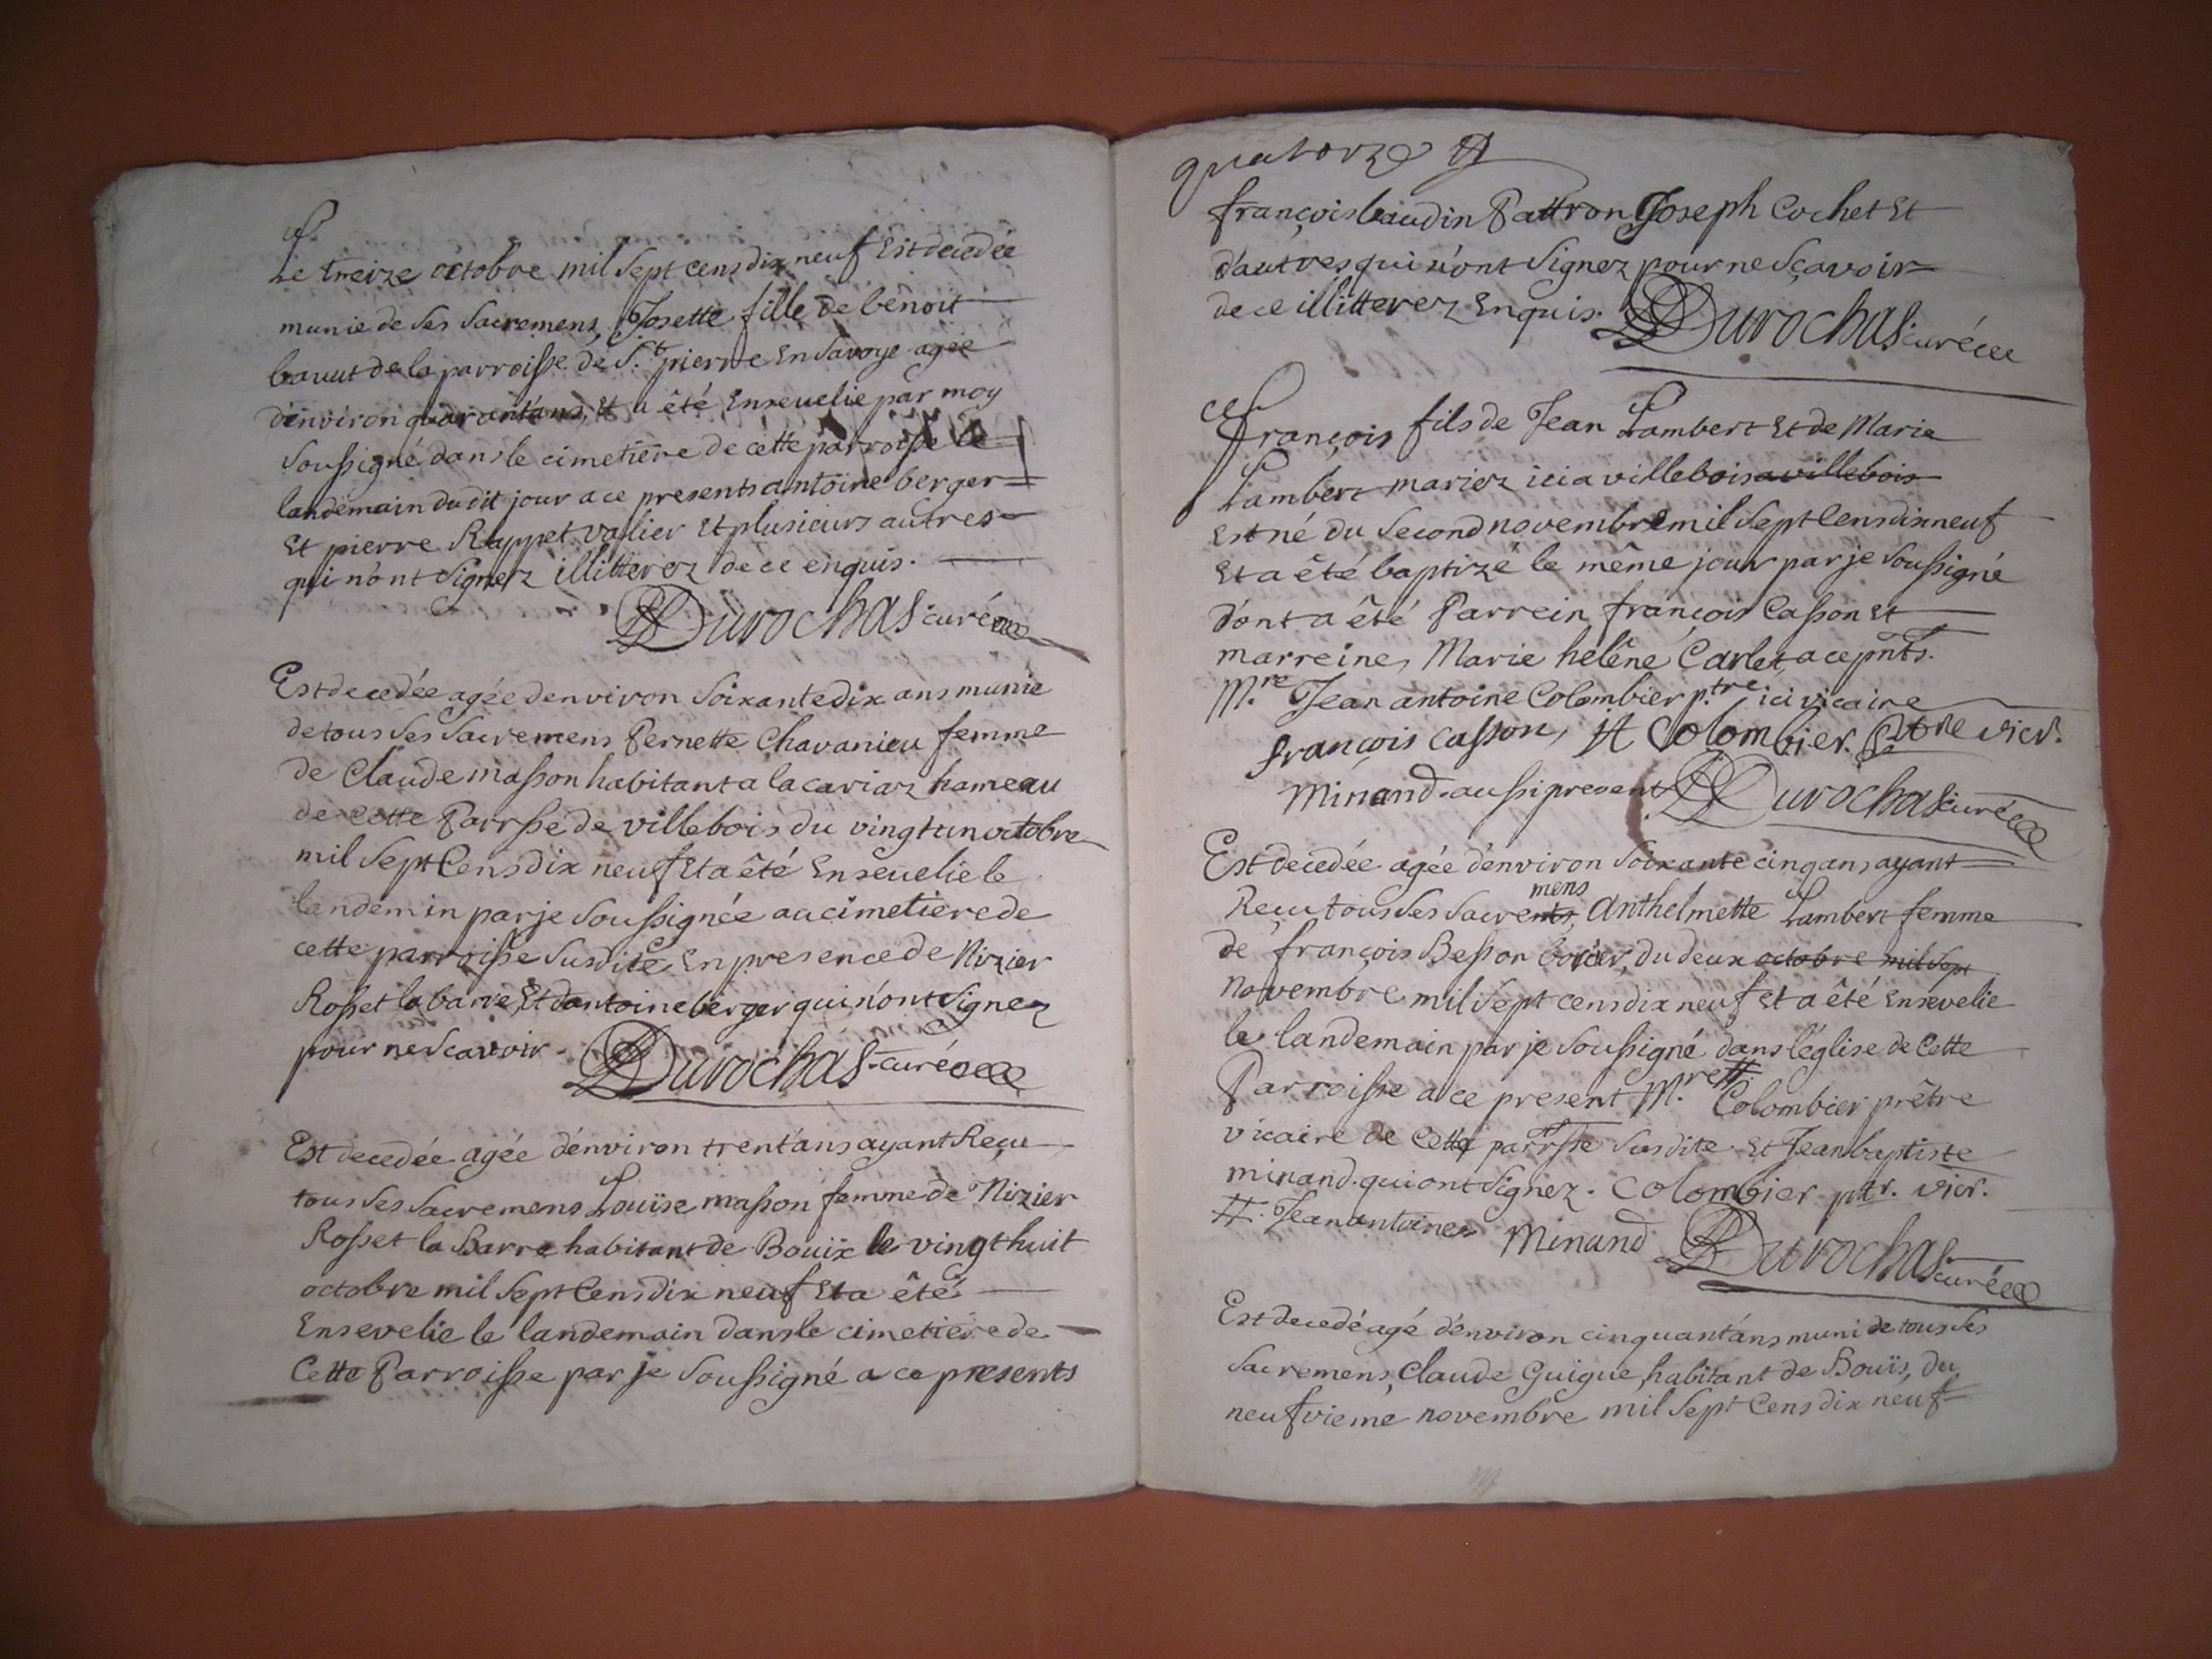 Le treize octobre mil sept cens dix neuf Est decedée
munie de ses sacremens, Josette fille de benoit
bavut de la parroisse de S.t pierre En Savoye agée
d'environ quarant'ans, Et a êté Enseuelie par moy
soussigné dans le cimetiere de cette parroisse le
landemain du dit jour a ce presents antoine berger
Et pierre Rappet valier Et plusieurs autres
qui n'ont signez illitterez de ce enquis.
Durochas curé
Est decedée agée d'environ soixante dix ans munie
de tous ses sacremens Pernette Chavanieu femme
de Claude masson habitant a la cariaz hameau
de cette Parrsse de villebois du vingt un octobre
mil sept Cens dix neuf Et a êté Enseuelie le
landemin par je soussignée au cimetiere de
cette parroisse susdite En presence de Nizier
Rosset la barre, Et d'antoine berger qui n'ont signez
pour ne scavoir. Durochas curé
Est decedée agée d'environ trent'ans ayant Reçu
tous ses sacremens Louise masson femme de Nizier
Rosset la Barre habitant de Bouix le vingt huit
octobre mil sept Cens dix neuf Et a êté
Ensevelie le landemain dans le cimetiere de
Cette Parroisse par je soussigné a ce presents
quatorze
françois baudin Pattron Joseph Cochet Et
d'autres qui n'ont signez pour ne sçavoir
de ce illitterez Enquis. Durochas curé
françois fils de Jean Lambert Et de Marie
Lambert mariez ici a villebois a villebois
Est né du second novembre mil sept Cens dix neuf
Et a êté baptizé le même jour par je soussigné
d'ont a êté Parrein françois Casson Et
marreine, Marie helêne Carlet, a ce pnts.
M.re Jean antoine Colombier p.tre ici vicaire
françois casson, Colombier Ptre vicr.
Minand aussi present Durochas curé
Est decedée agée d'environ soixante cinq ans ayant
mens
Reçu tous ses sacrents, Anthelmette Lambert femme
de françois Besson, du deux octobre mil sept
Novembre mil sept cens dix neuf Et a êté Ensevelie
le landemain par je soussigné dans l'église de Cette
Parroisse a ce present M.re # Colombier prêtre
vicaire de Cette parrsse susdite Et Jean baptiste
minand qui ont signez. Colombier ptr. vicr.
#. Jean antoine Minand Durochas curé
Est decedé agé d'environ cinquant'ans muni de tous ses
sacremens, Claude Guigue, habitant de Bouïs, du
neufvieme novembre mil sept Cens dix neuf